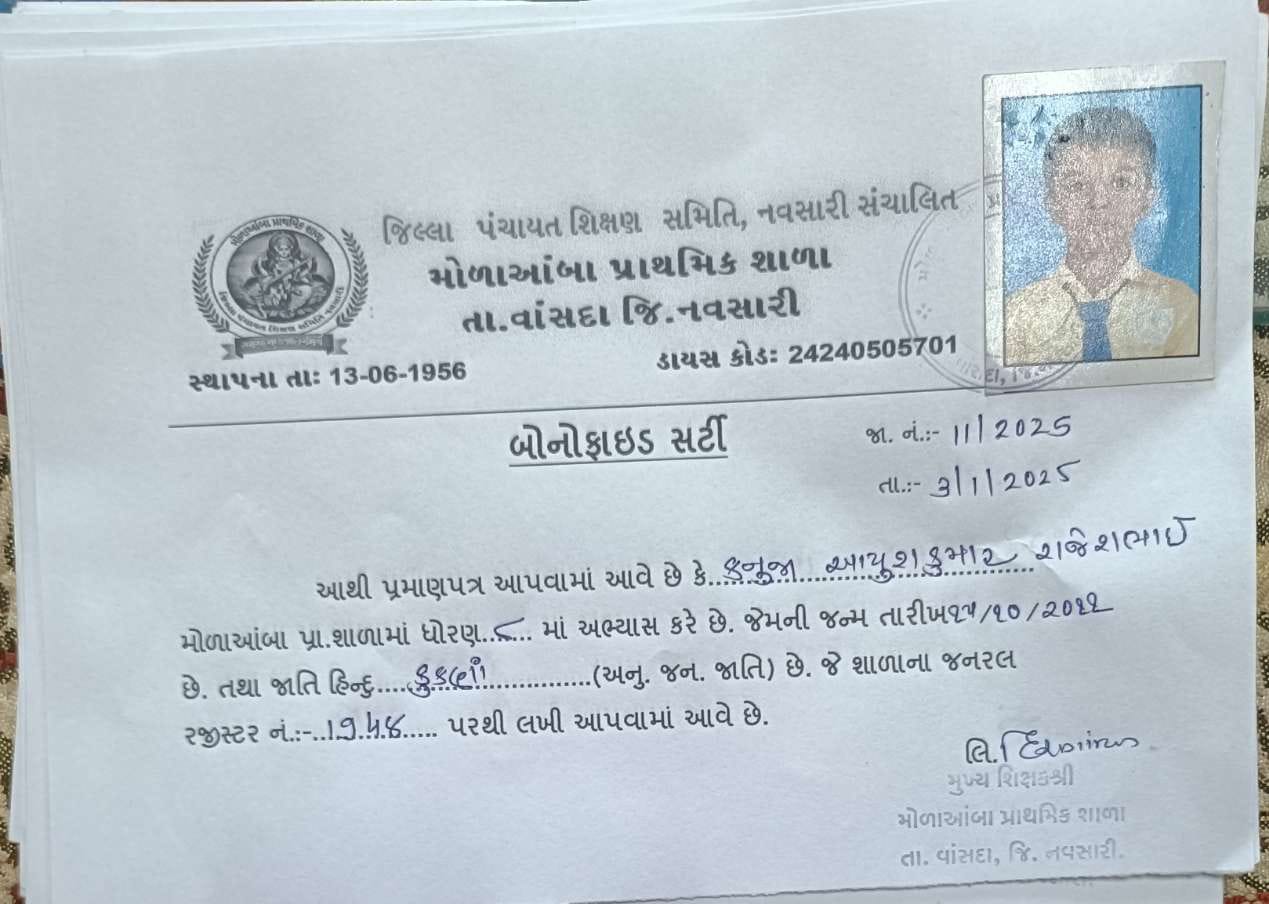 મોળાઆંબા પ્રાથમિક શાળા
જિલ્લા પંચાયત શિક્ષણ સમિતિ, નવસારી સંચાલિત
મોળાઆંબા પ્રાથમિક શાળા
તા.વાંસદા જિ.નવસારી
સ્થાપના તાઃ 13-06-1956
ડાયસ કોડઃ 24240505701
બોનોફાઇડ સર્ટી
જા. નં.:- 11/2025
તા.:- 3/1/2025
આથી પ્રમાણપત્ર આપવામાં આવે છે કે..કનુજા આયુશકુમાર રાજેશભાઈ
મોળાઆંબા પ્રા.શાળામાં ધોરણ..૮... માં અભ્યાસ કરે છે. જેમની જન્મ તારીખ ૨૫/૧૦/૨૦૧૧
છે. તથા જાતિ હિન્દુ....કુકણા..............(અનુ. જન. જાતિ) છે. જે શાળાના જનરલ
રજીસ્ટર નં.:-..૧૭૫૪..... પરથી લખી આપવામાં આવે છે.
લિ.
મુખ્ય શિક્ષકશ્રી
મોળાઆંબા પ્રાથમિક શાળા
તા. વાંસદા, જિ. નવસારી.